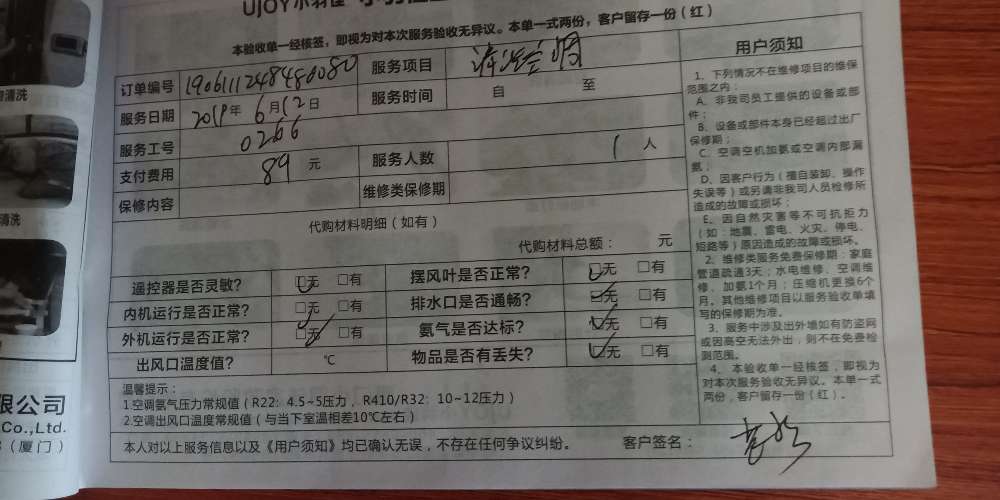 UJOY小羽佳
本验收单一经核签，即视为对本次服务验收无异议。本单一式两份，客户留存一份（红）
订单编号 1906111248486080 服务项目
服务日期 2019年6月12日 服务时间 自 至
服务工号 0266
支付费用 89 元 服务人数 1 人
保修内容 维修类保修期
代购材料明细（如有）
代购材料总额： 元
遥控器是否灵敏？ □无 □有 摆风叶是否正常？ □无 □有
内机运行是否正常？ □无 □有 排水口是否通畅？ □无 □有
外机运行是否正常？ □无 □有 氨气是否达标？ □无 □有
出风口温度值？ ℃ 物品是否有丢失？ □无 □有
温馨提示：
1.空调氨气压力常规值（R22：4.5~5压力，R410/R32：10~12压力）
2.空调出风口温度常规值（与当下室温相差10℃左右）
本人对以上服务信息以及《用户须知》均已确认无误，不存在任何争议纠纷。 客户签名：
用户须知
1、下列情况不在维修项目的维保
范围之内：
A、非我司员工提供的设备或部
件；
B、设备或部件本身已经超过出厂
保修期；
C、空调空机加氨或空调内部漏
氨；
D、因客户行为（擅自装卸、操作
失误等）或另请非我司人员检修所
造成的故障或损坏；
E、因自然灾害等不可抗拒力
（如：地震、雷电、火灾、停电、
短路等）原因造成的故障或损坏。
2、维修类服务免费保修期：家庭
管道疏通3天；水电维修、空调维
修、加氨1个月；压缩机更换6个
月。其他维修项目以服务验收单填
写的保修期为准。
3、服务中涉及出外墙如有防盗网
或因高空无法外出，则不在免费检
测范围。
4、本验收单一经核签，即视为
对本次服务验收无异议。本单一式
两份，客户留存一份（红）。
清洗
清洗
限公司
Co.,Ltd.
（厦门）